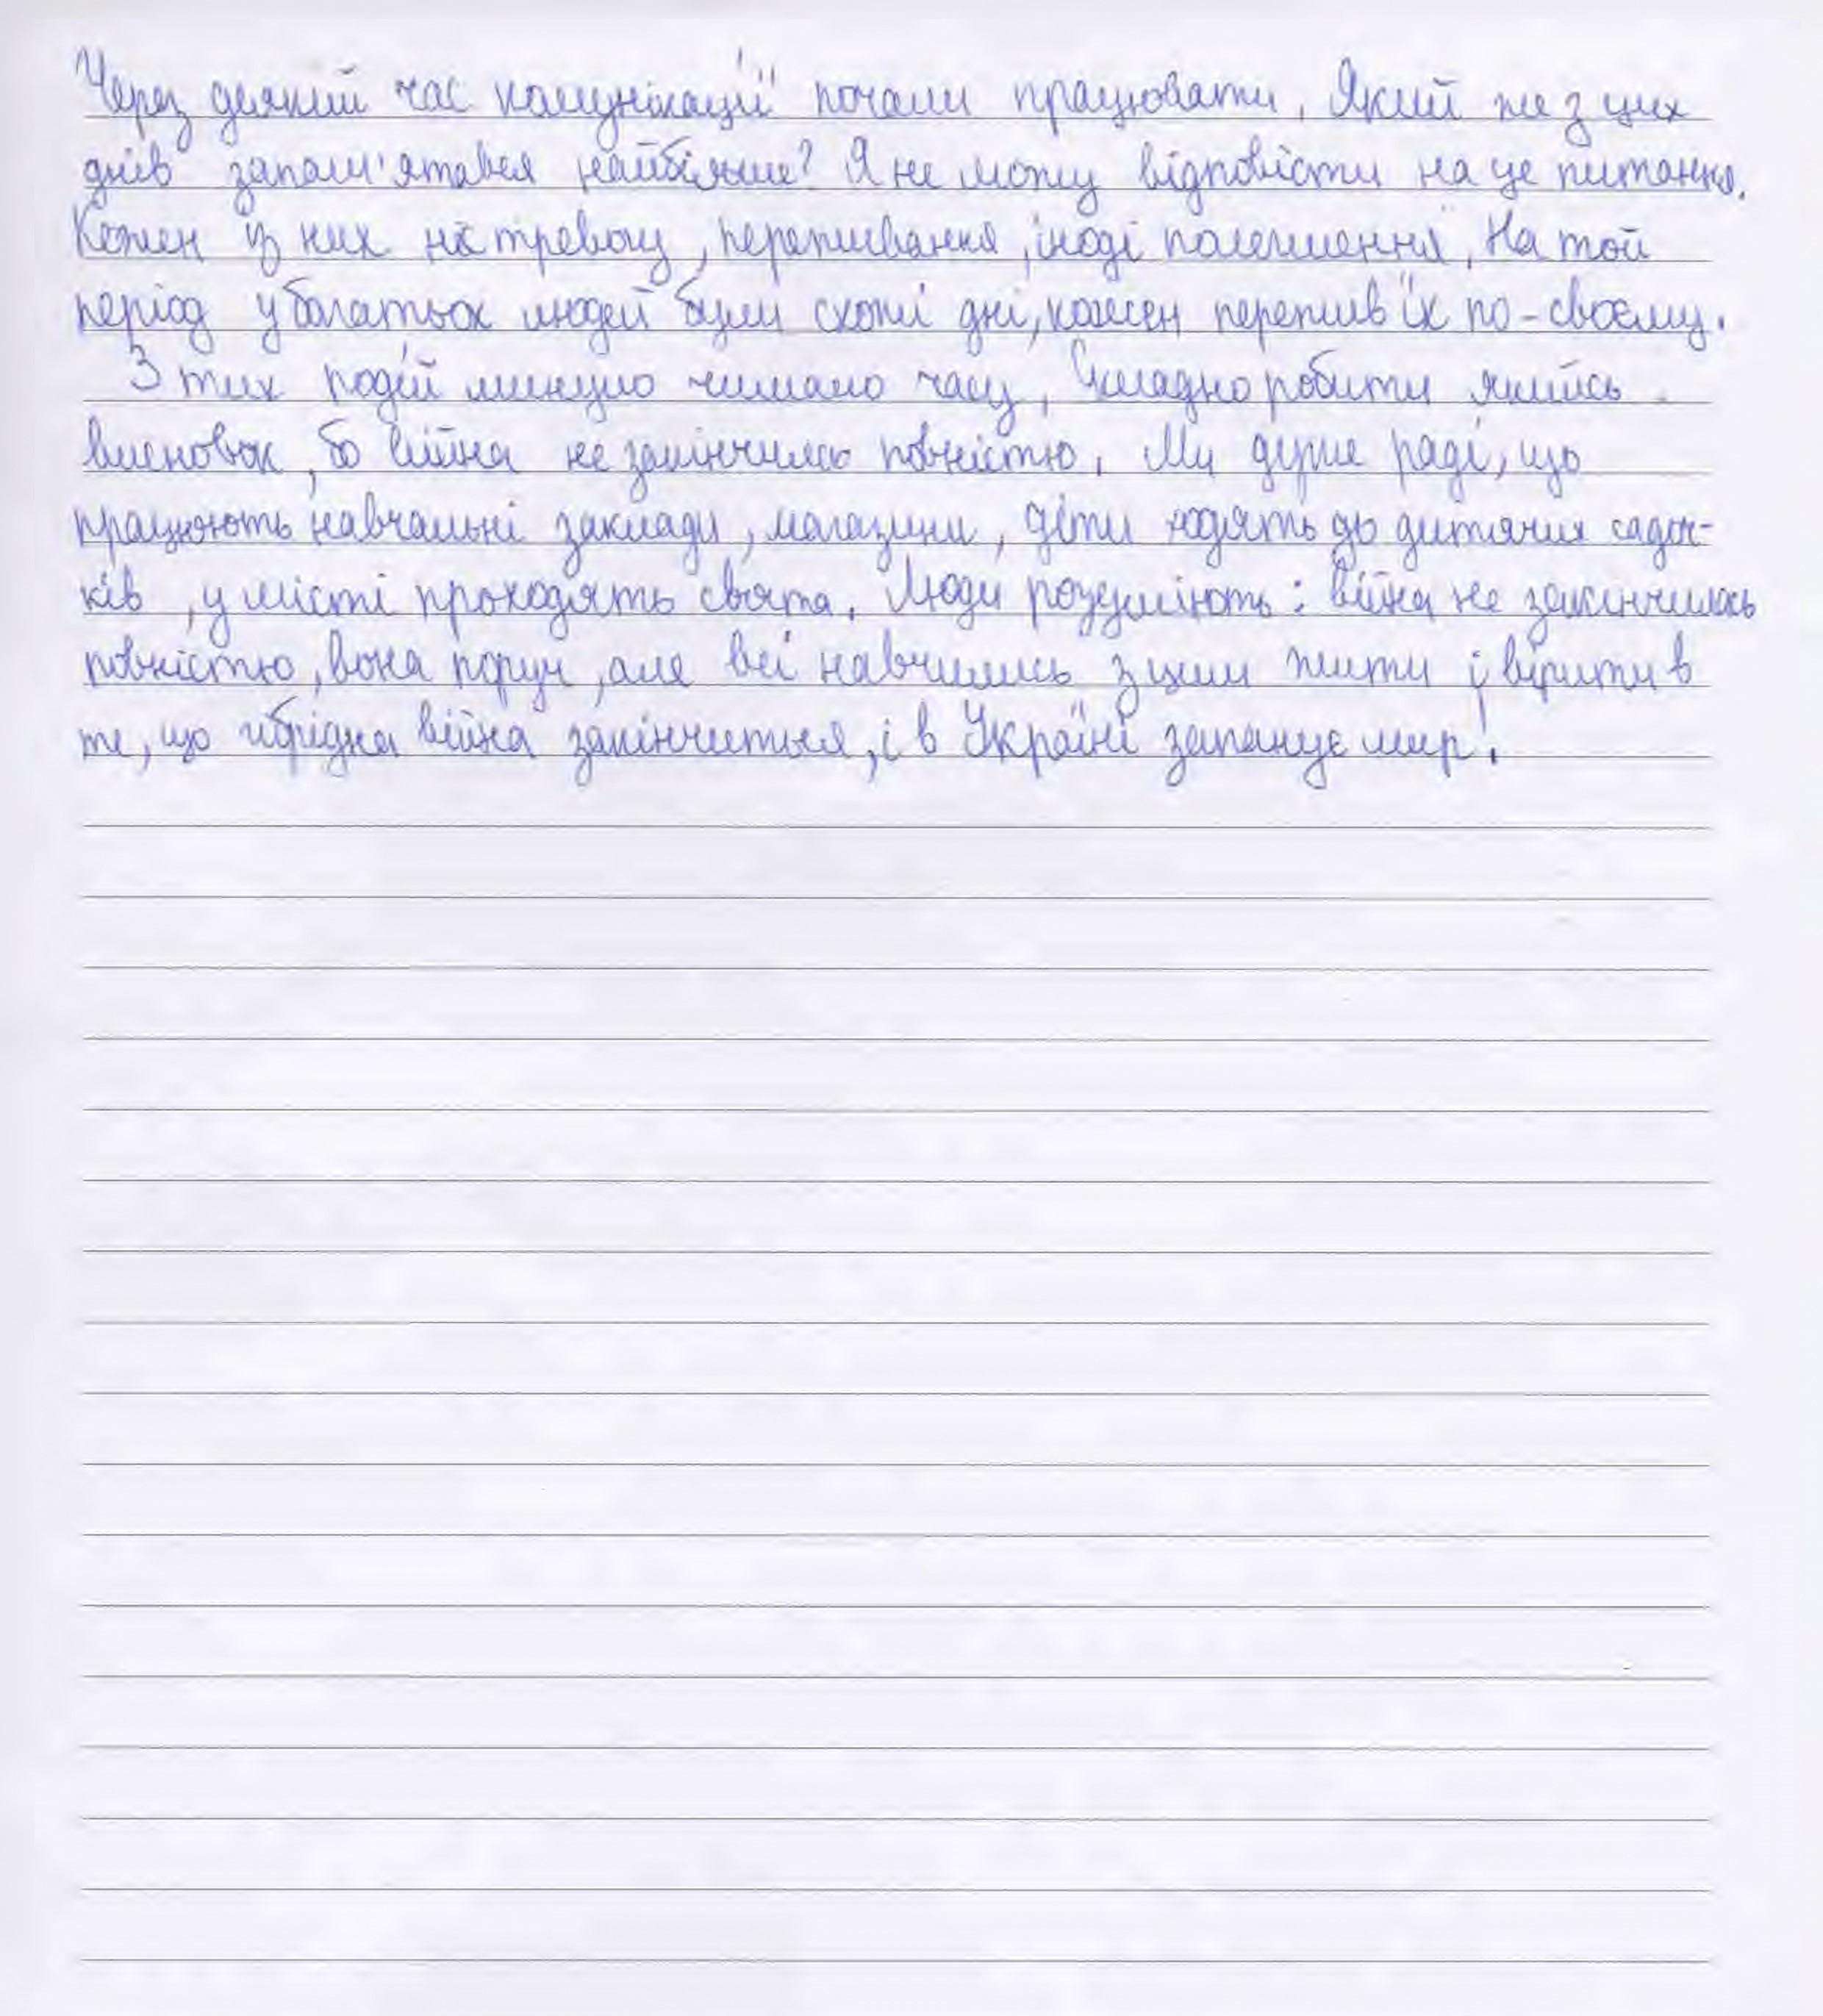 Через деякий час комунікації почали працювати. Який же з цих
днів запам'ятався найбільше? Я не можу відповісти на це питання.
Кожен із них ніс тривогу, переживання, іноді полегшення. На той
період у багатьох людей були схожі дні, кожен пережив їх по-своєму.
З тих подій минуло чимало часу. Складно робити якийсь
висновок, бо війна не закінчилась повністю. Ми дуже раді, що
працюють навчальні заклади, магазини, діти ходять до дитячих садоч-
ків, у місті проходять свята. Люди розуміють: війна не закінчилась
повністю, вона поруч, але всі навчились з цим жити і вірити в
те, що гібрідна війна закінчиться, і в Україні запанує мир!